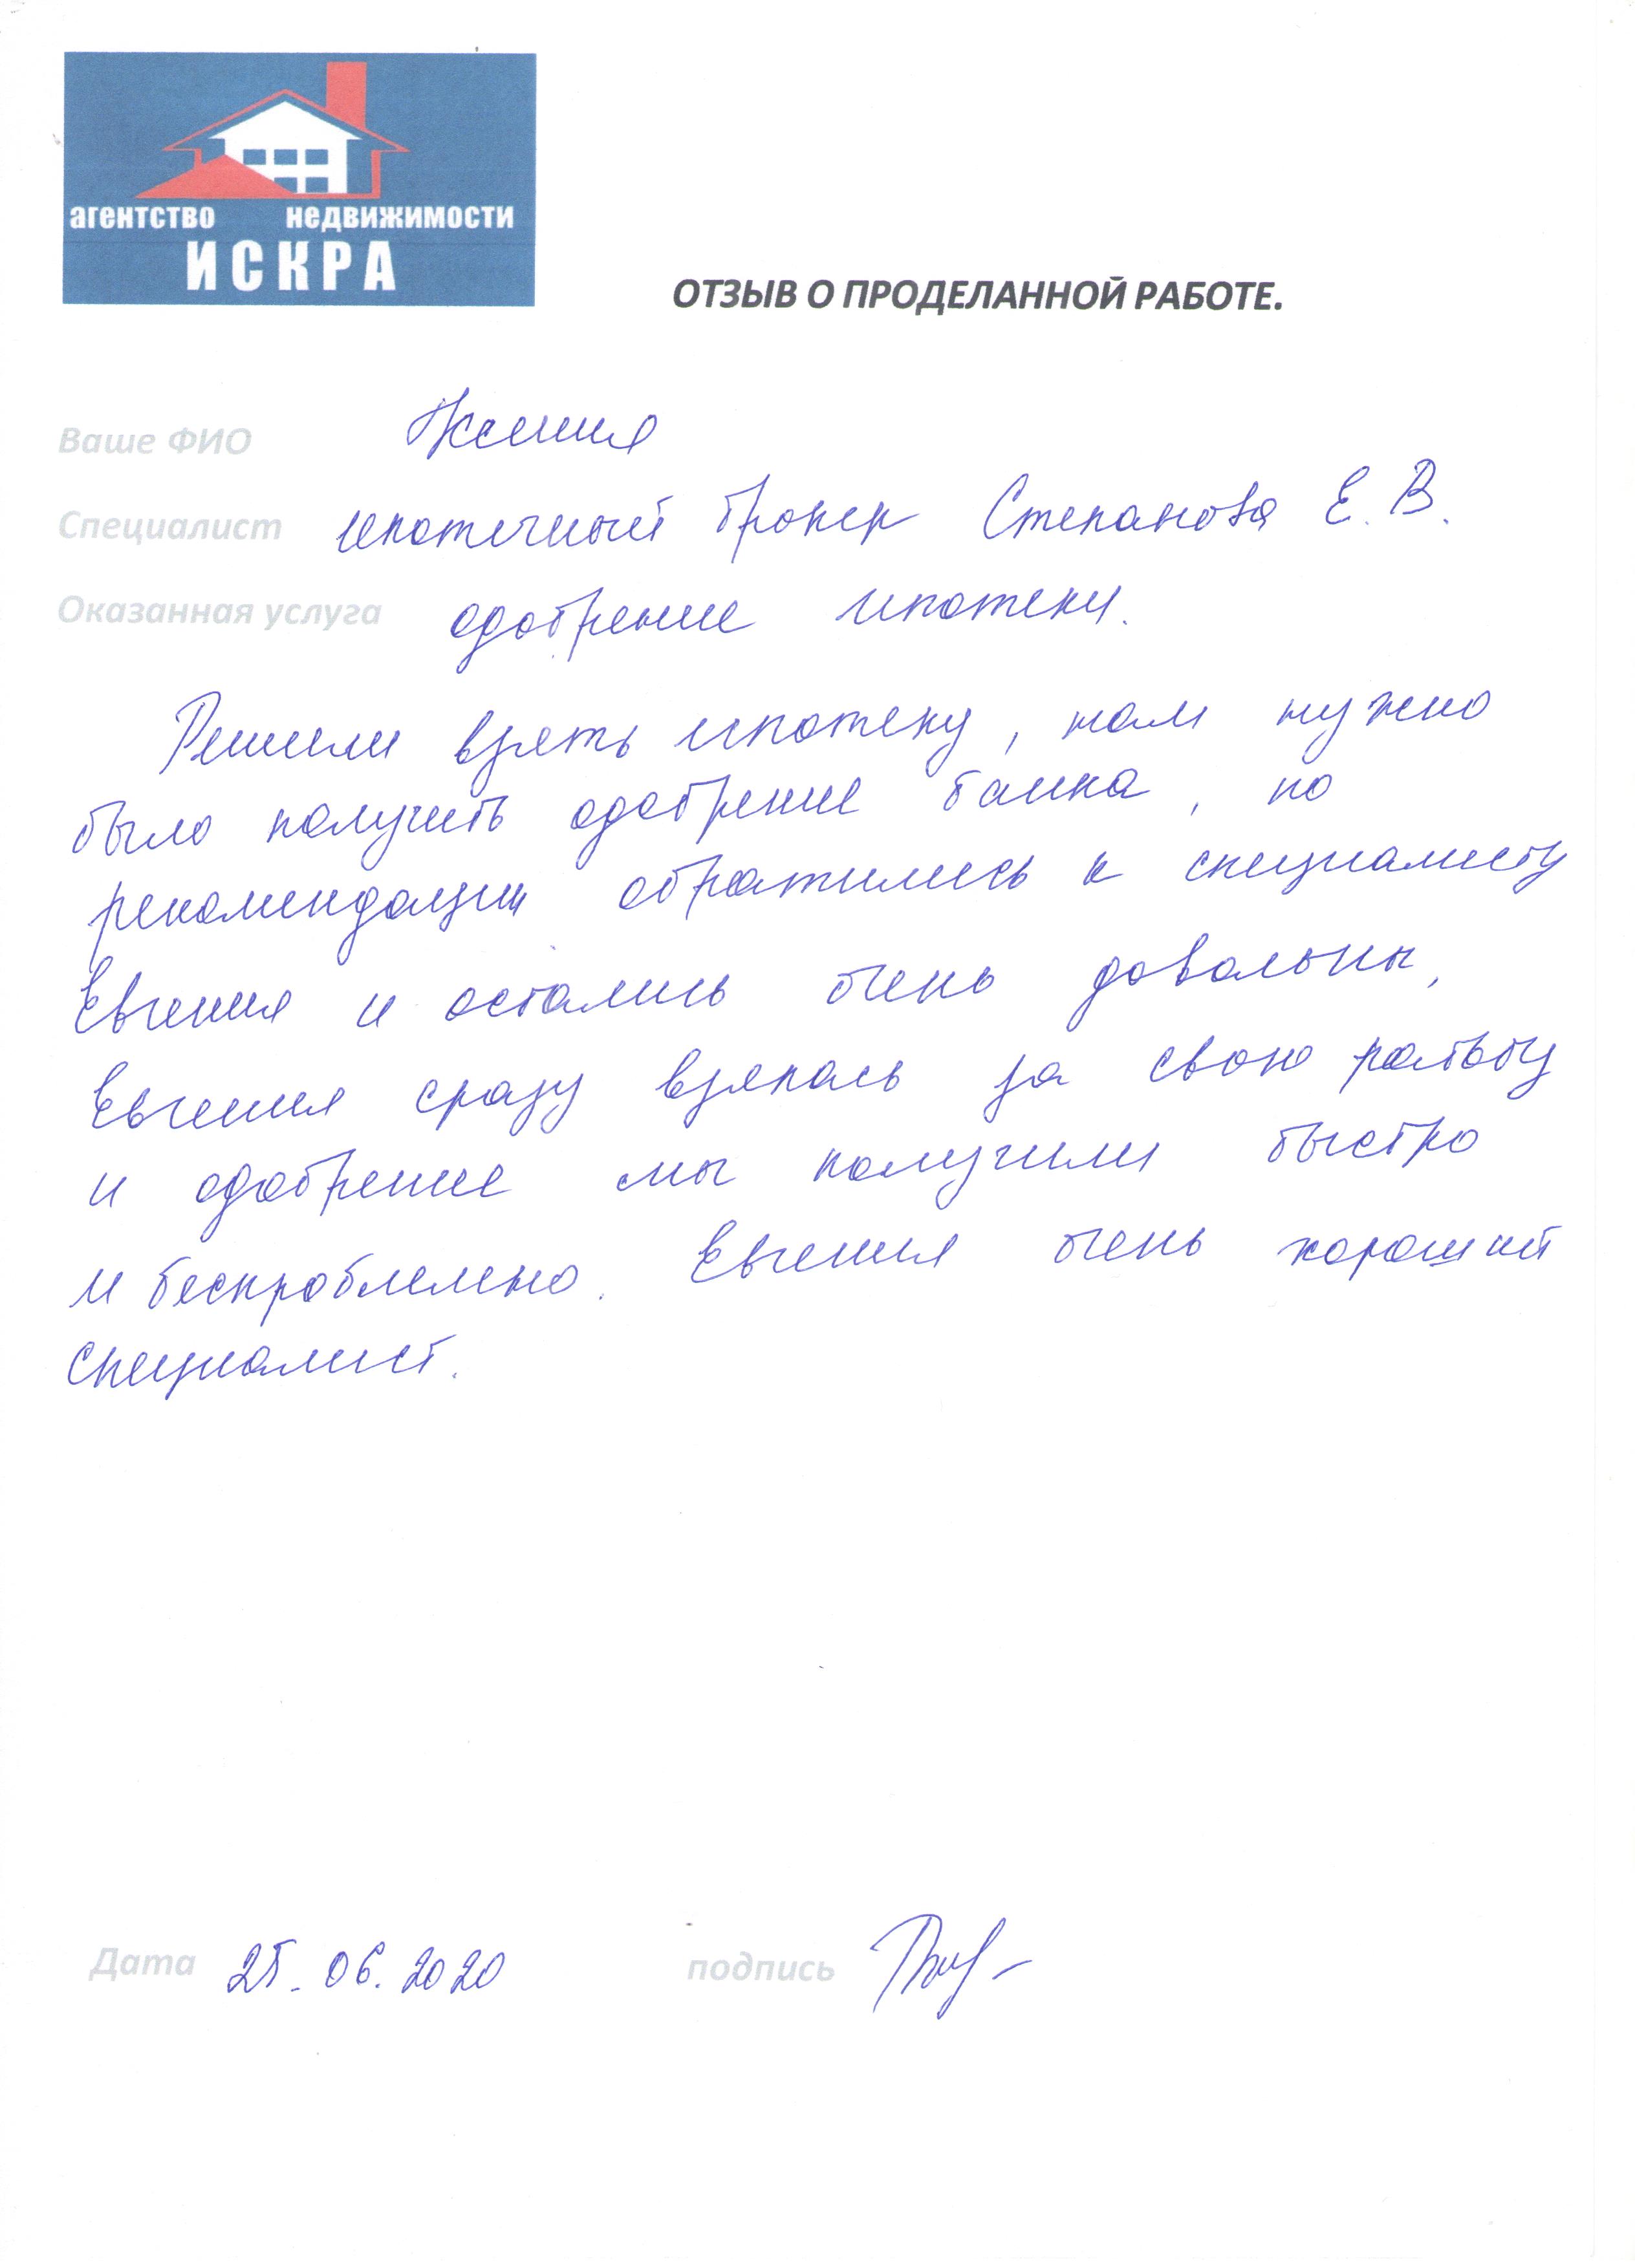 агентство недвижимости
ИСКРА
ОТЗЫВ О ПРОДЕЛАННОЙ РАБОТЕ.
Ваше ФИО Ксения
Специалист ипотечный брокер Степанова Е. В.
Оказанная услуга одобрение ипотеки.
Решили взять ипотеку, нам нужно
было получить одобрение банка, по
рекомендации обратились к специалисту
Евгения и остались очень довольны,
Евгения сразу взялась за свою работу
и одобрение мы получили быстро
и беспроблемно. Евгения очень хороший
специалист.
Дата 25.06.2020 подпись